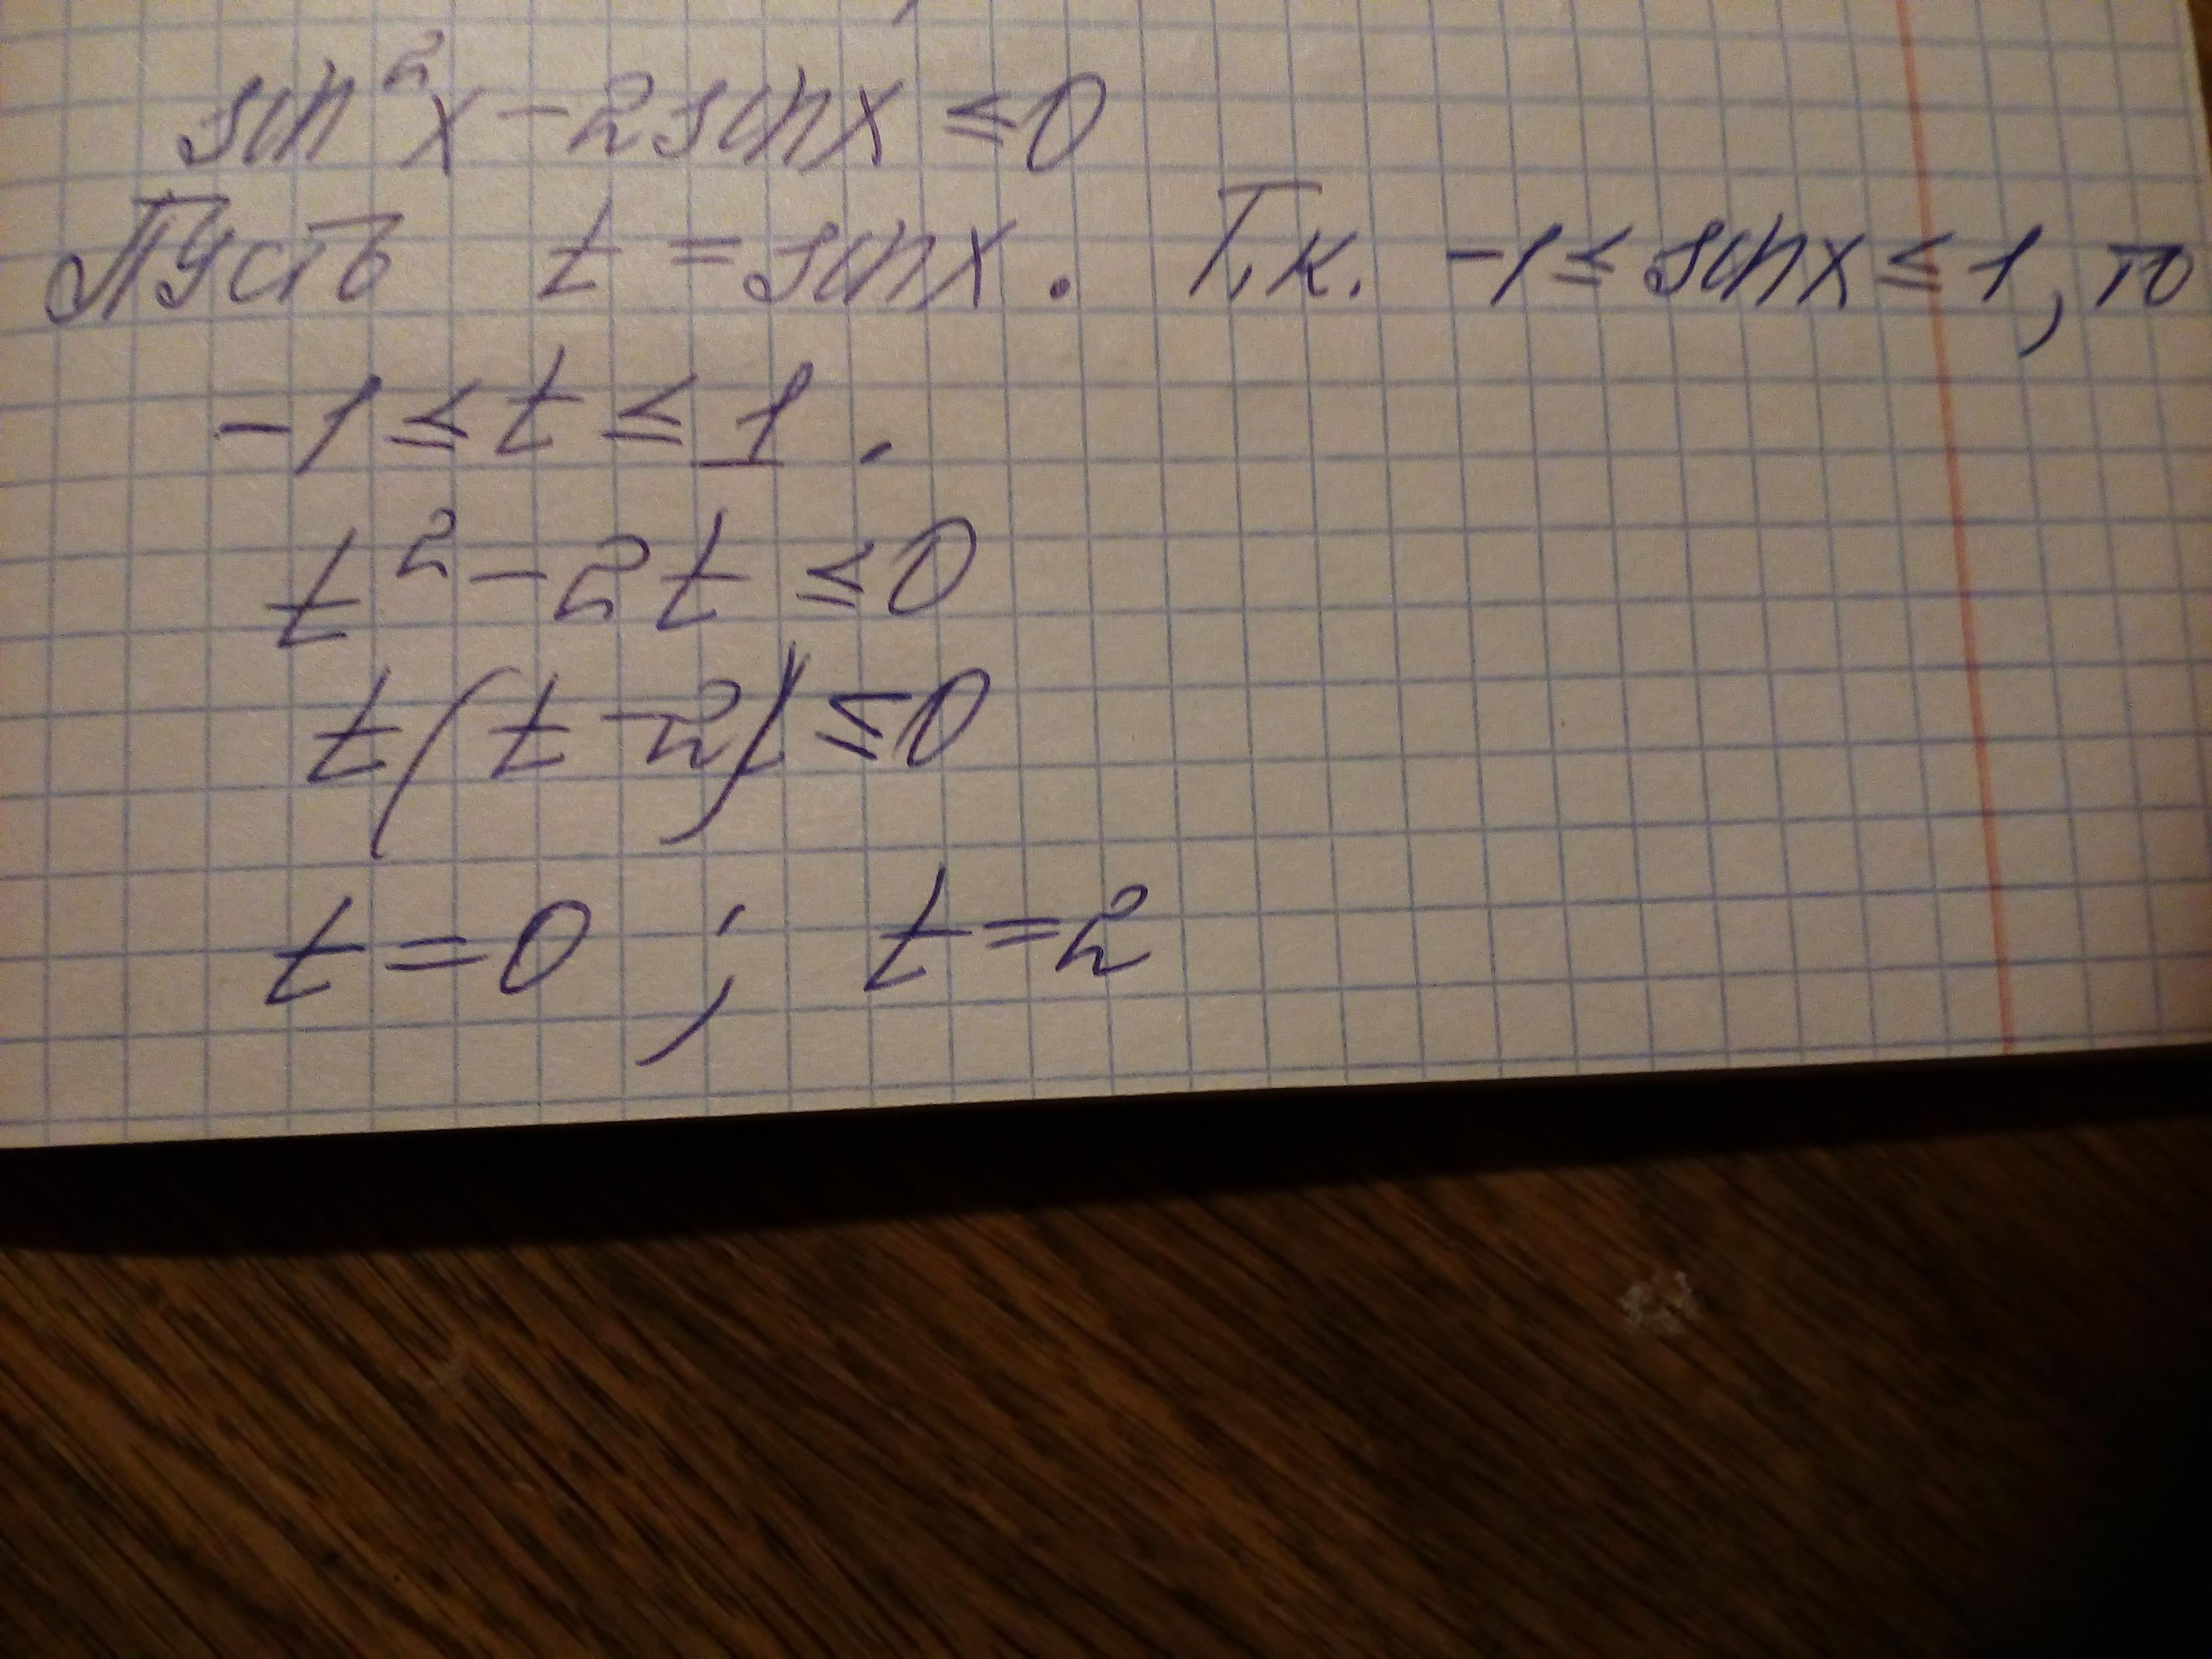 sin²x - 2sinx ≤ 0
Пусть t = sinx. Т.к. -1 ≤ sinx ≤ 1, то
-1 ≤ t ≤ 1.
t² - 2t ≤ 0
t(t - 2) ≤ 0
t = 0 ; t = 2